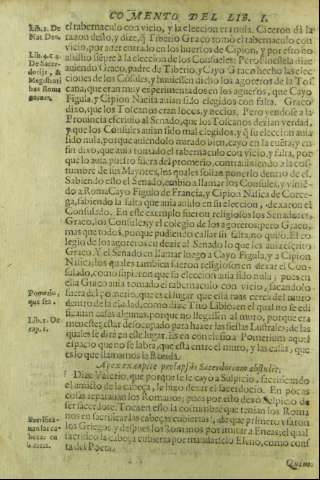 COMENTO DEL LIB. I.
el tabernaculo con vicio, y la eleccion era nula. Ciceron dà la
razon desto, y dize, q̃ Tiberio Graco tomò el tabernaculo con
vicio, por auer entrado en los huertos de Cipion, y por esso no
asistio siẽpre à la eleccion de los Consules: Pero
auiendo Graco, padre de Tiberio, y Cayo Graco hecho las elec
ciones de los Cõsules, y huuiessen dicho los agoreros de la Tos
cana, que eran muy experimentados en los agueros, que Cayo
Figula, y Cipion Nacica auian sido elegidos con falta. Graco
dixo, que los Toscanos eran locos, y necios. Pero yendose a la
Prouincia escriuio al Senado, que los Toscanos dezian verdad,
y que los Consules auian sido mal elegidos, y q̃ su eleccion auia
sido nula, porque auiendolo mirado bien, cayò en la cuẽta, y en
fin dixo, que auia tomado el tabernaculo con vicio, y falta, por
que lo auia puesto fuera del promerio, contrauiniendo a la cos-
tumbre de sus Mayores, los quales solian ponerlo dentro de el.
Sabiendo esto el Senado, embio a llamar los Consules, y viniẽ-
do a Roma Cayo Figulo de Francia, y Cipion Nasica de Corce-
ga, sabiendo la falta que auia auido en su eleccion, dexaron el
Consulado. En este exemplo fueron religiosos los Senadores,
Graco, los Consules, y el colegio de los agoreros; pero Graco,
mas que todos, porque pudiendo callar su falta, no quiso. El co-
legio de los agoreros en dezir al Senado lo que les auia escrito
Graco. Y el Senado en llamar luego a Cayo Figula, y a Cipion
Nacica; los quales tambien fueron religiosos en dexar el Con-
sulado, como supieron que su eleccion auia sido nula, pues en
ella Graco auia tomado el tabernaculo con vicio, sacandolo
fuera del pomerio, que es el lugar que està mas cerca del muro
dentro de la ciudad, como dize Tito Libio, en el qual no se edi
ficauan casas algunas, porque no llegassen al muro, porque era
menester estar desocupado para hazer las fiestas Lustrales, de las
quales se dirà en este lugar. Es en conclusion Pomerium aquel
espacio que no se labra, que està entre el muro, y las casas, que
es lo que llamamos la Ronda.
Apex ex capite prolapsus Sacerdotium abstulit.
Dize Valerio, que porque se le cayò a Sulpicio, sacrificando
el de la cabeça, le hizo dexar el sacerdocio. En pocas
cosas reparauan los Romanos, pues por esto dexò Sulpicio de
ser sacerdote. Toca en esto la costumbre que tenian los Roma
nos en sacrificar las cabeças cubiertas, de que primero vsaron
los Griegos, y despues los Romanos por imitar a Eneas, el qual
sacrificò la cabeça cubierta por mandarselo Eleno, como cons
ta del Poeta.
Quino.
Lib. 2. De
Nat. Deo.
Magistrati
Pomerio,
que sea.
Lib. 1. De
cap. 1.